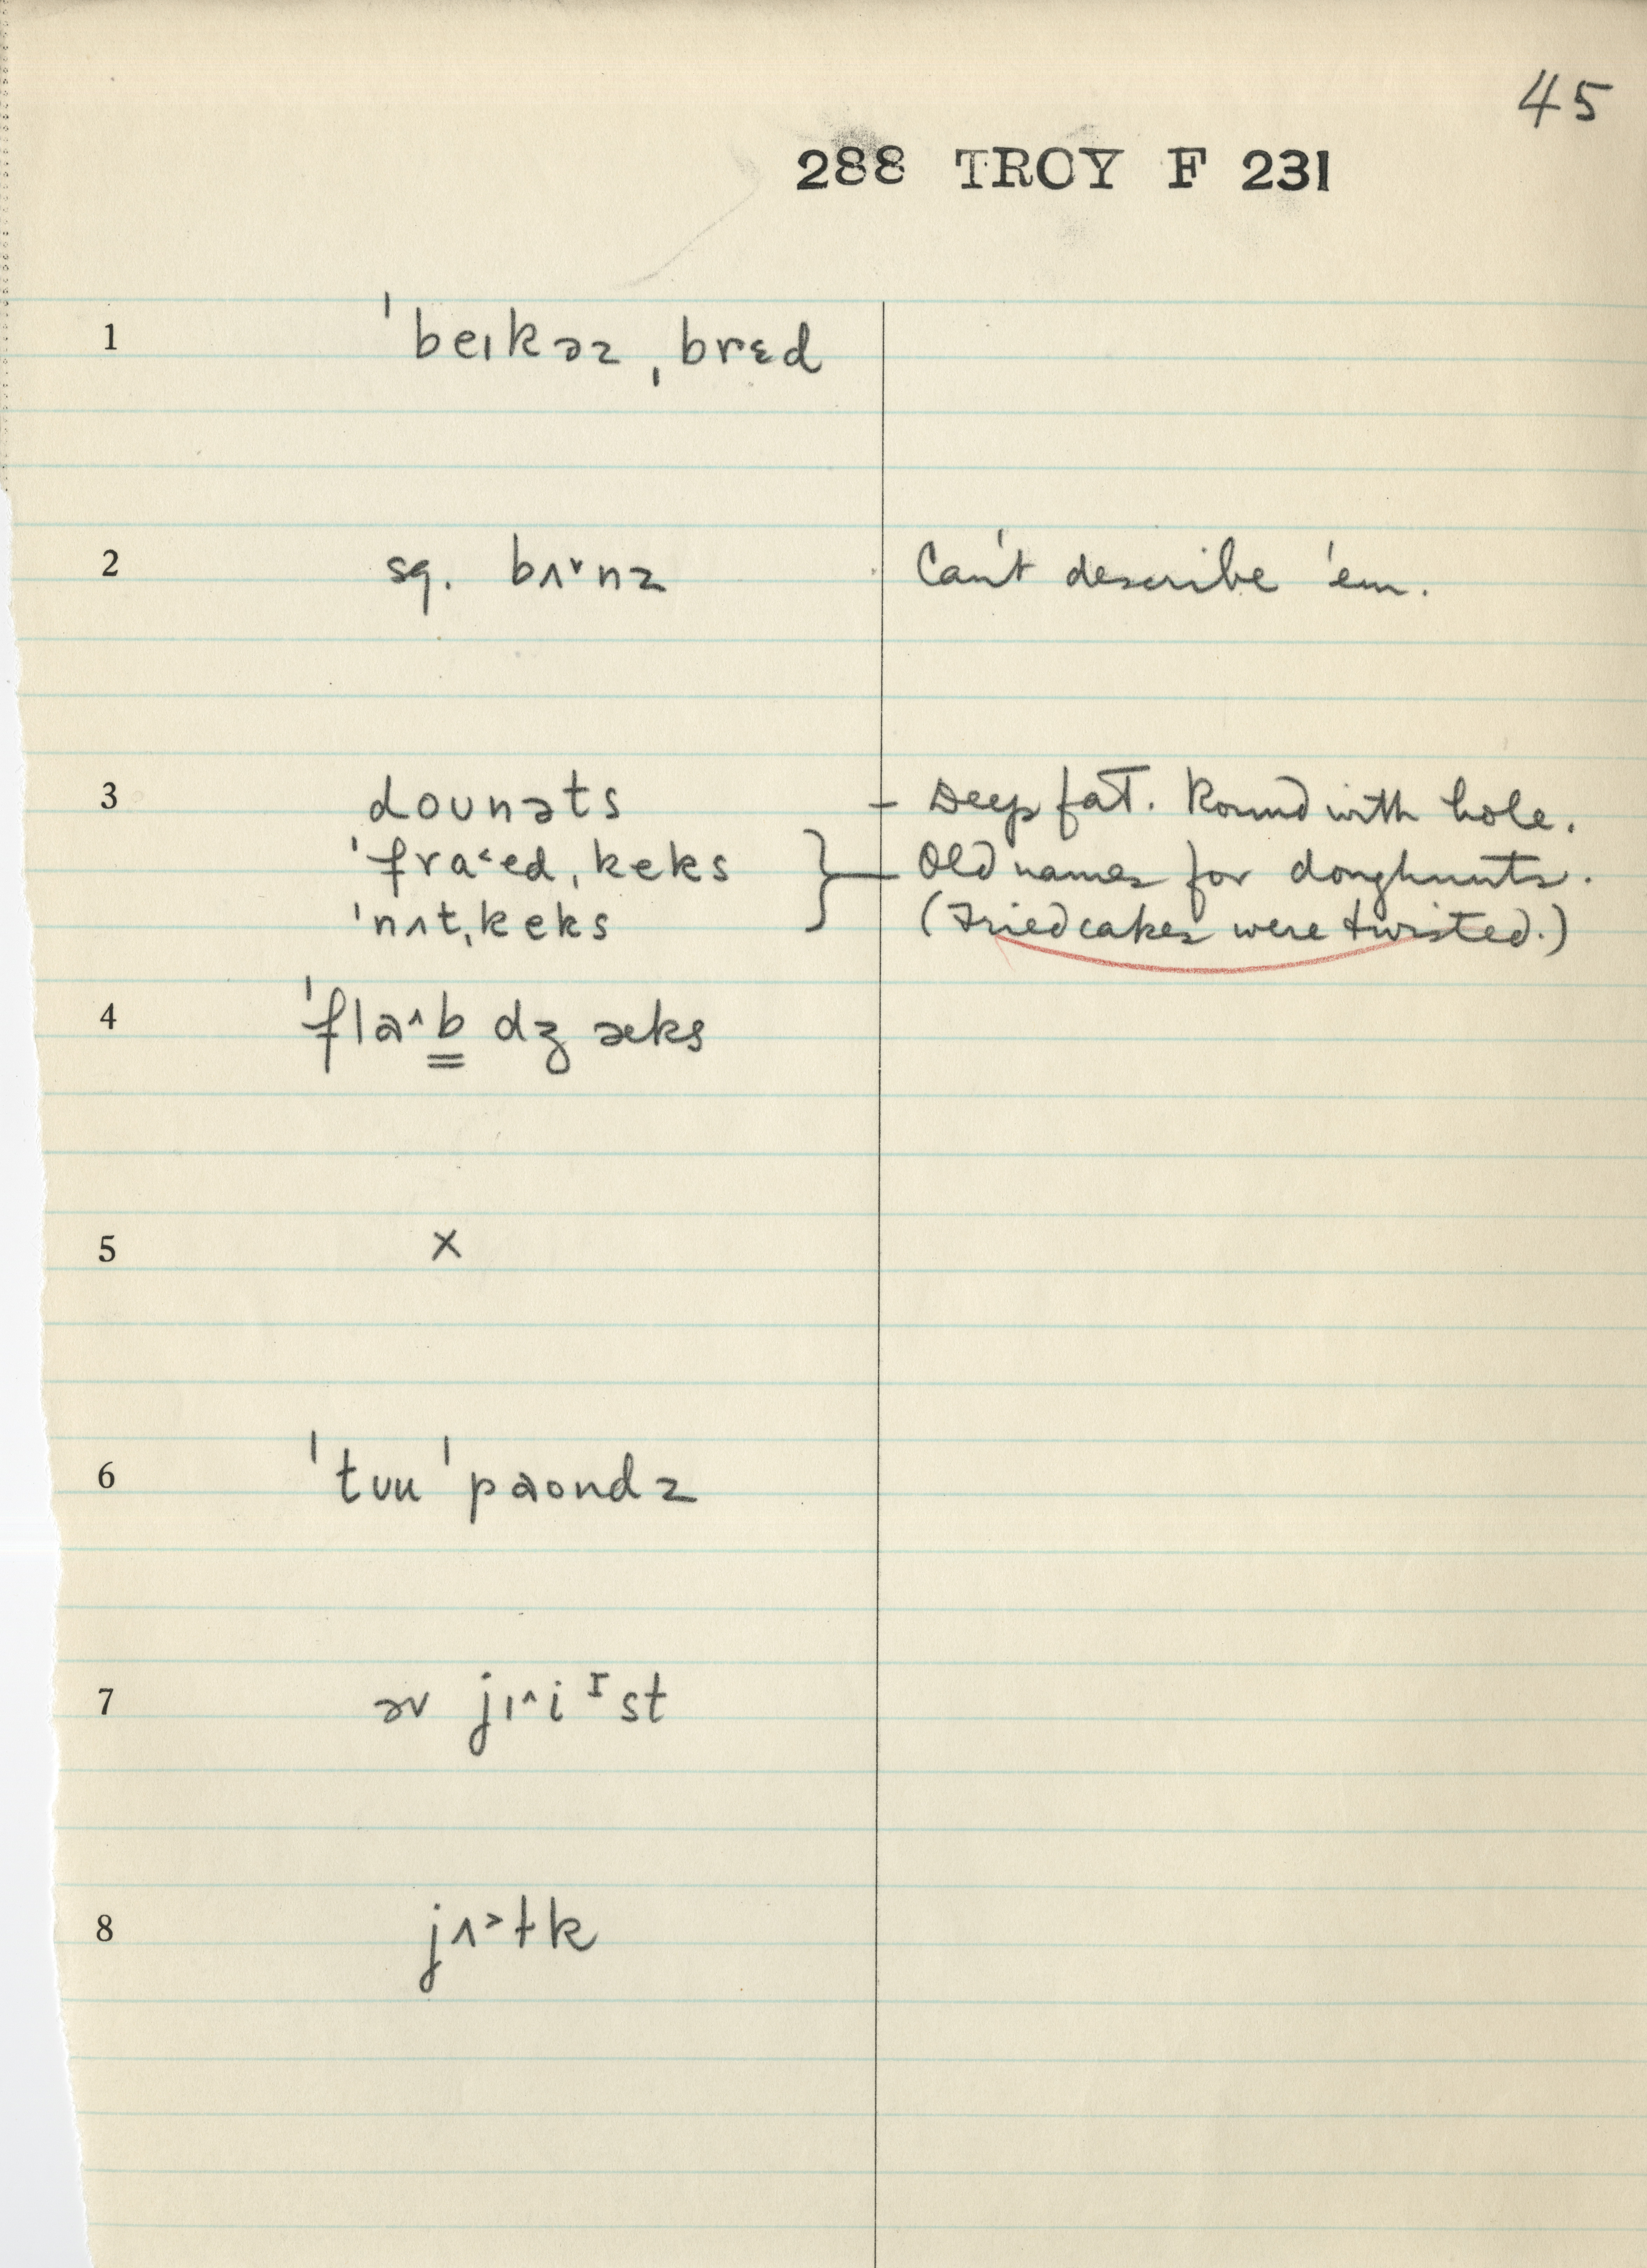 45
288 TROY F 231
1 ˈbeɪkəz ˌbrɛd
2 sg. bʌ˅nz Can't describe 'em.
3 doʊnəts – Deep fat. Round with hole.
ˈfra˂ed ˌkeks } Old names for doughnuts.
ˈnʌt ˌkeks (Fried cakes were twisted.)
4 ˈflaˆb dʒæks
5 x
6 ˈtʊu ˈpaondz
7 əv jɪˆi ᴵst
8 jʌ˃ɫk